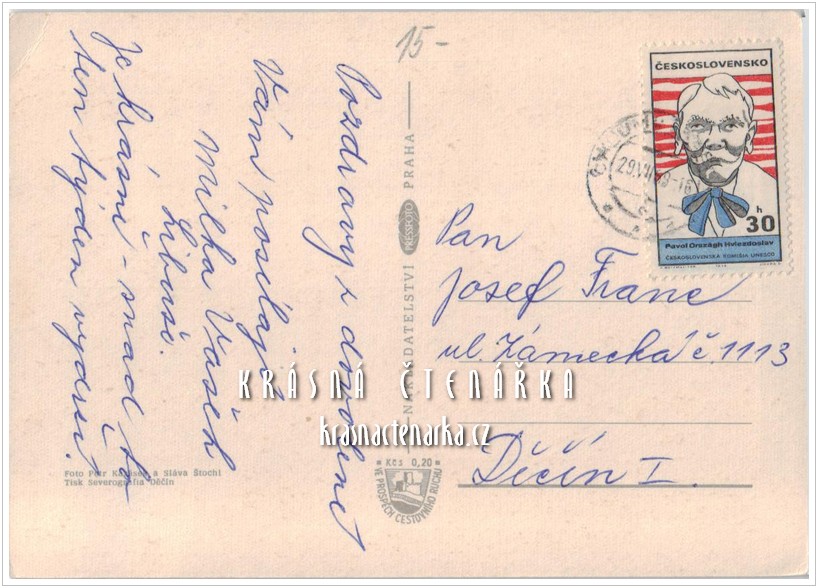 15-
Pozdravy z dovolené
Vám posílají
Milka Vašek
Libuše.
Je krásně - snad to
ten týden vydrží.
NAKLADATELSTVÍ PRESSFOTO PRAHA
Kčs 0,20
VE PROSPĚCH CESTOVNÍHO RUCHU
Foto Petr a Sláva Štochl
Tisk Severografia Děčín
ČESKOSLOVENSKO
30 h
Pavol Országh Hviezdoslav
ČESKOSLOVENSKÁ KOMISIA UNESCO
Pan
Josef Franc
ul. Zámecká č. 1113
Děčín I.
KRÁSNÁ ČTENÁŘKA
krasnactenarka.cz